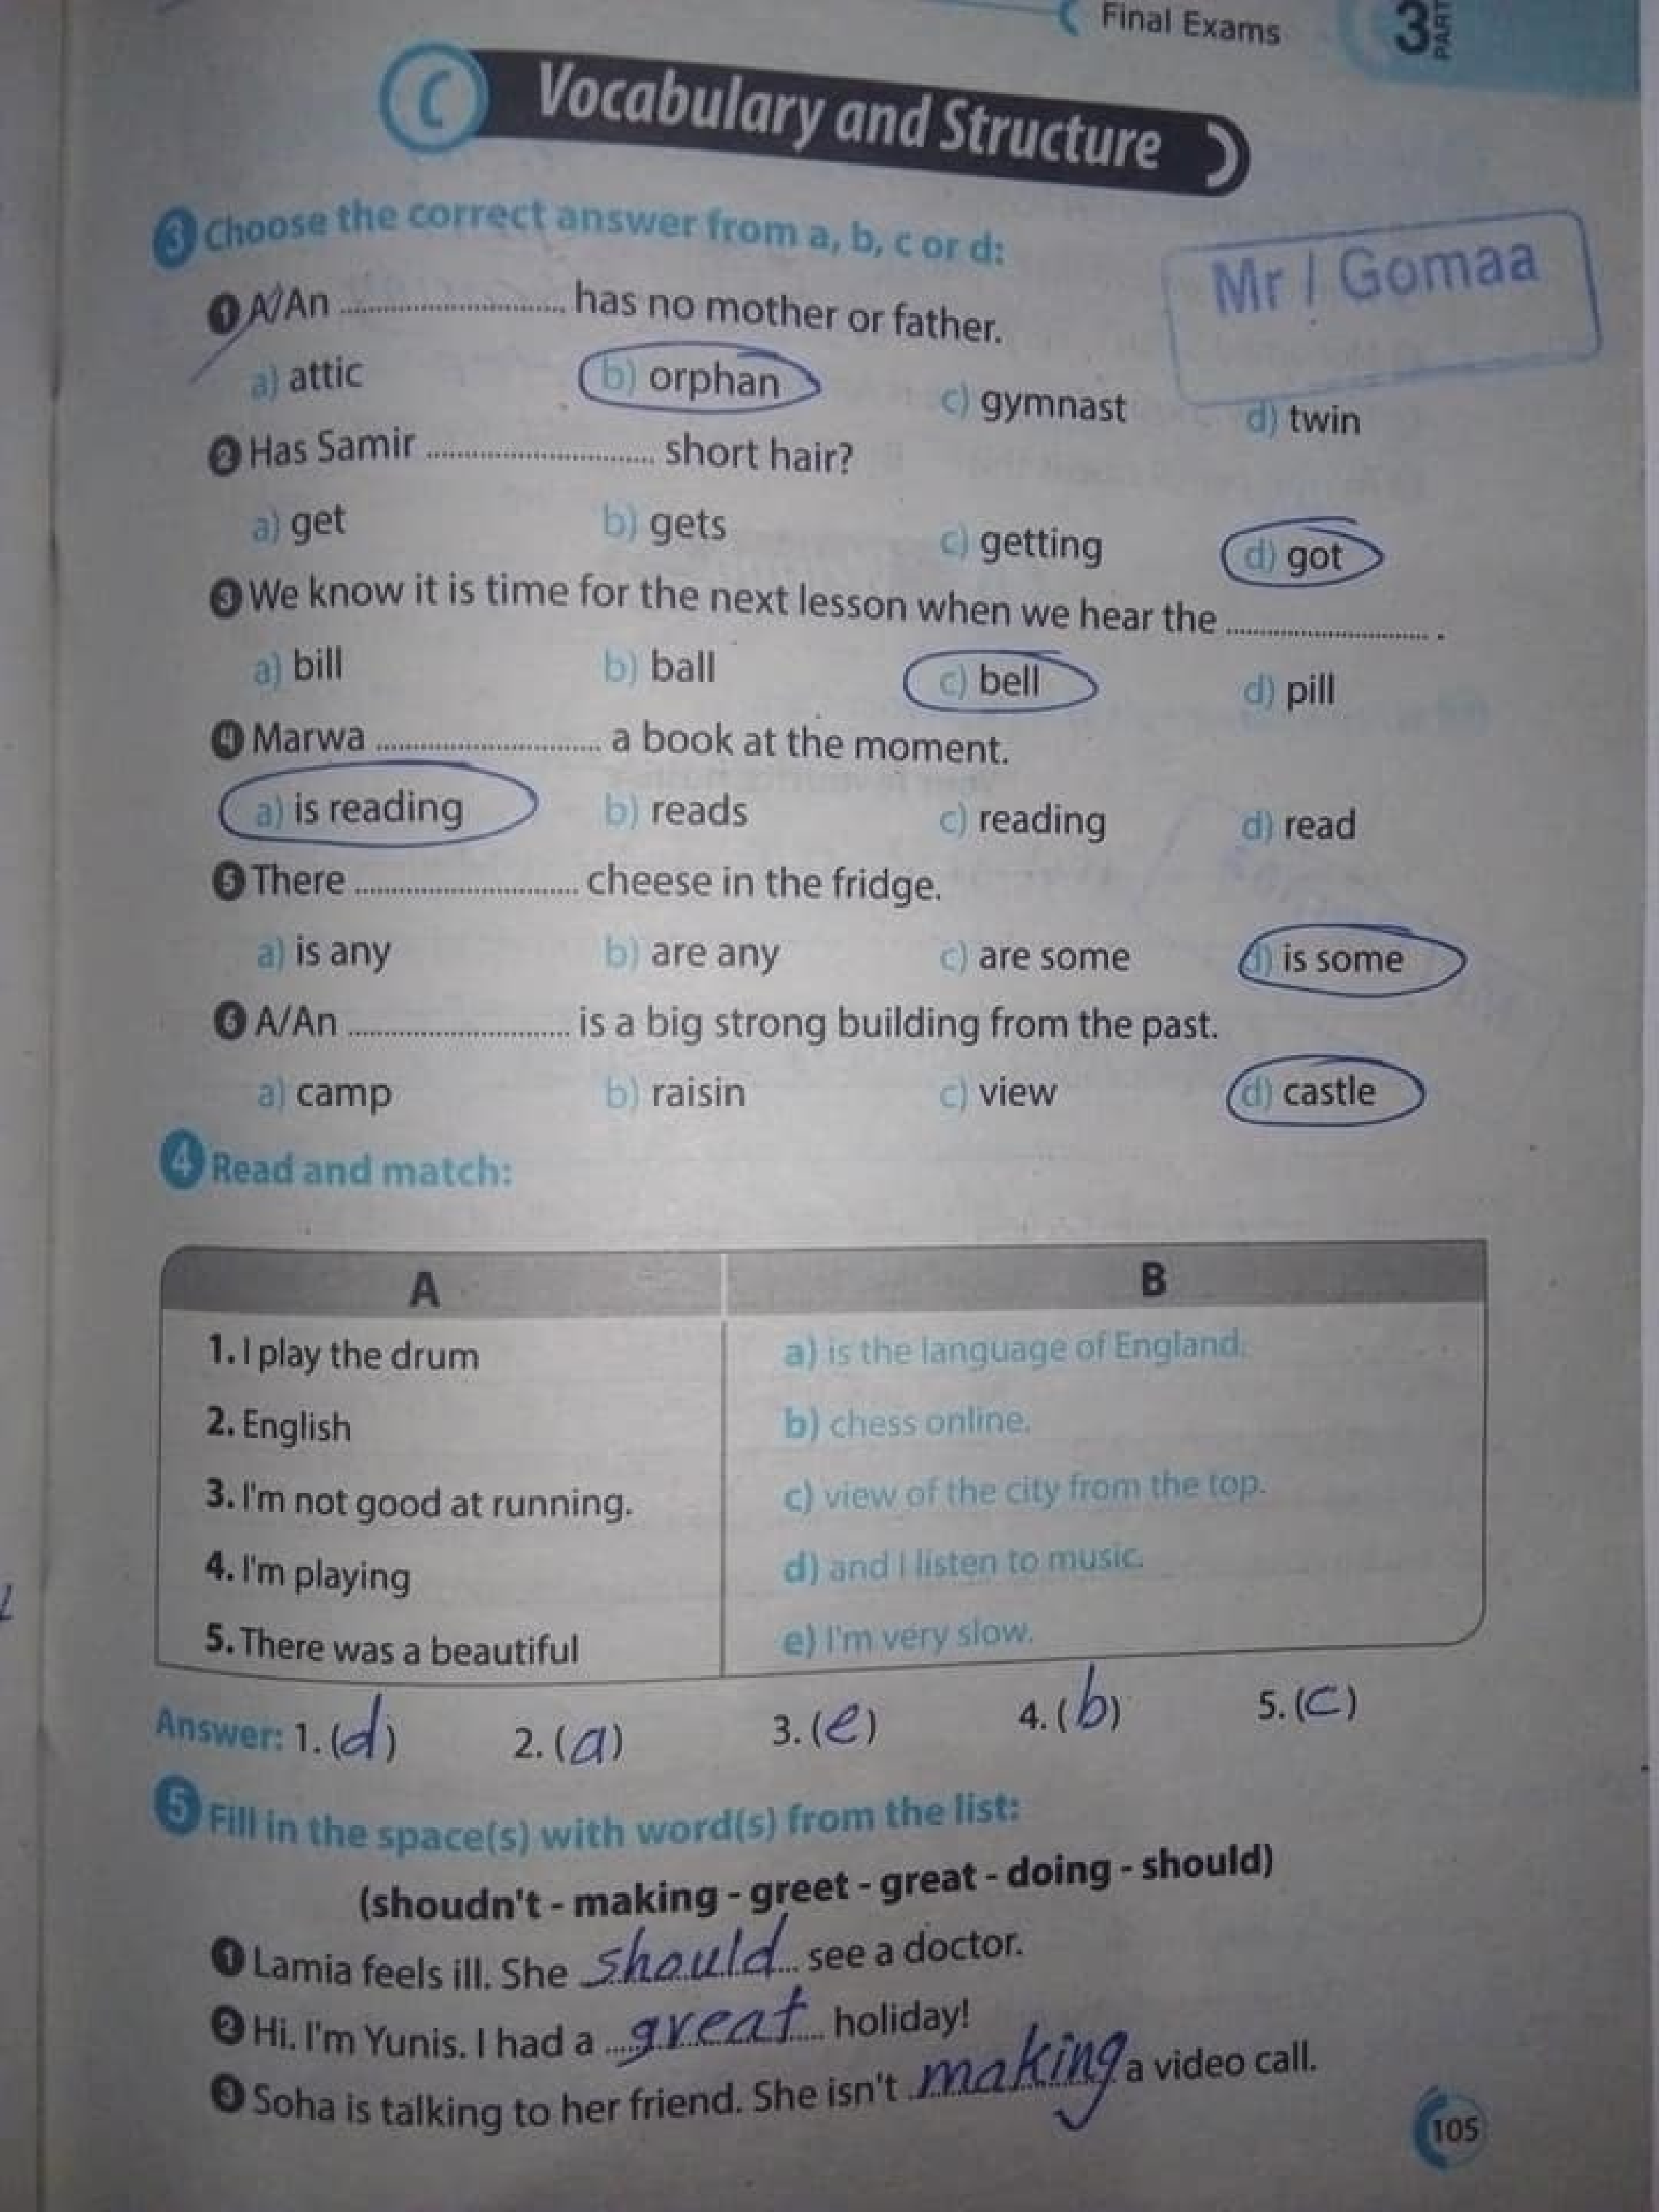 Final Exams
3 PART
C Vocabulary and Structure
3 Choose the correct answer from a, b, c or d:
Mr / Gomaa
1 A/An ........................ has no mother or father.
a) attic b) orphan c) gymnast d) twin
2 Has Samir ........................ short hair?
a) get b) gets c) getting d) got
3 We know it is time for the next lesson when we hear the ........................ .
a) bill b) ball c) bell d) pill
4 Marwa ........................ a book at the moment.
a) is reading b) reads c) reading d) read
5 There ........................ cheese in the fridge.
a) is any b) are any c) are some d) is some
6 A/An ........................ is a big strong building from the past.
a) camp b) raisin c) view d) castle
4 Read and match:
A B
1. I play the drum a) is the language of England.
2. English b) chess online.
3. I'm not good at running. c) view of the city from the top.
4. I'm playing d) and I listen to music.
5. There was a beautiful e) I'm very slow.
Answer: 1. (d) 2. (a) 3. (e) 4. (b) 5. (c)
5 Fill in the space(s) with word(s) from the list:
(shoudn't - making - greet - great - doing - should)
1 Lamia feels ill. She should see a doctor.
2 Hi. I'm Yunis. I had a great holiday!
3 Soha is talking to her friend. She isn't making a video call.
105